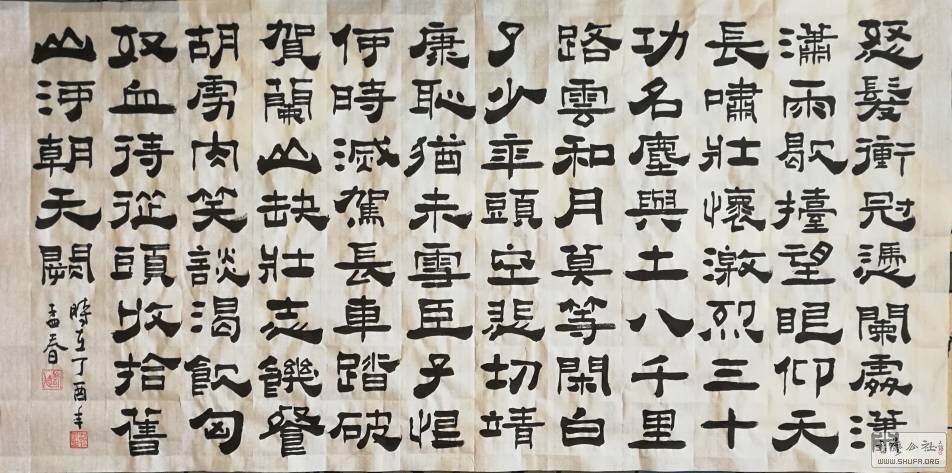 怒髮衝冠憑闌處瀟
瀟雨歇擡望眼仰天
長嘯壯懷激烈三十
功名塵與土八千里
路雲和月莫等閑白
了少年頭空悲切靖
康恥猶未雪臣子恨
何時滅駕長車踏破
賀蘭山缺壯志饑餐
胡虜肉笑談渴飲匈
奴血待從頭收拾舊
山河朝天闕
時在丁酉年
孟春
WWW.SHUFA.ORG